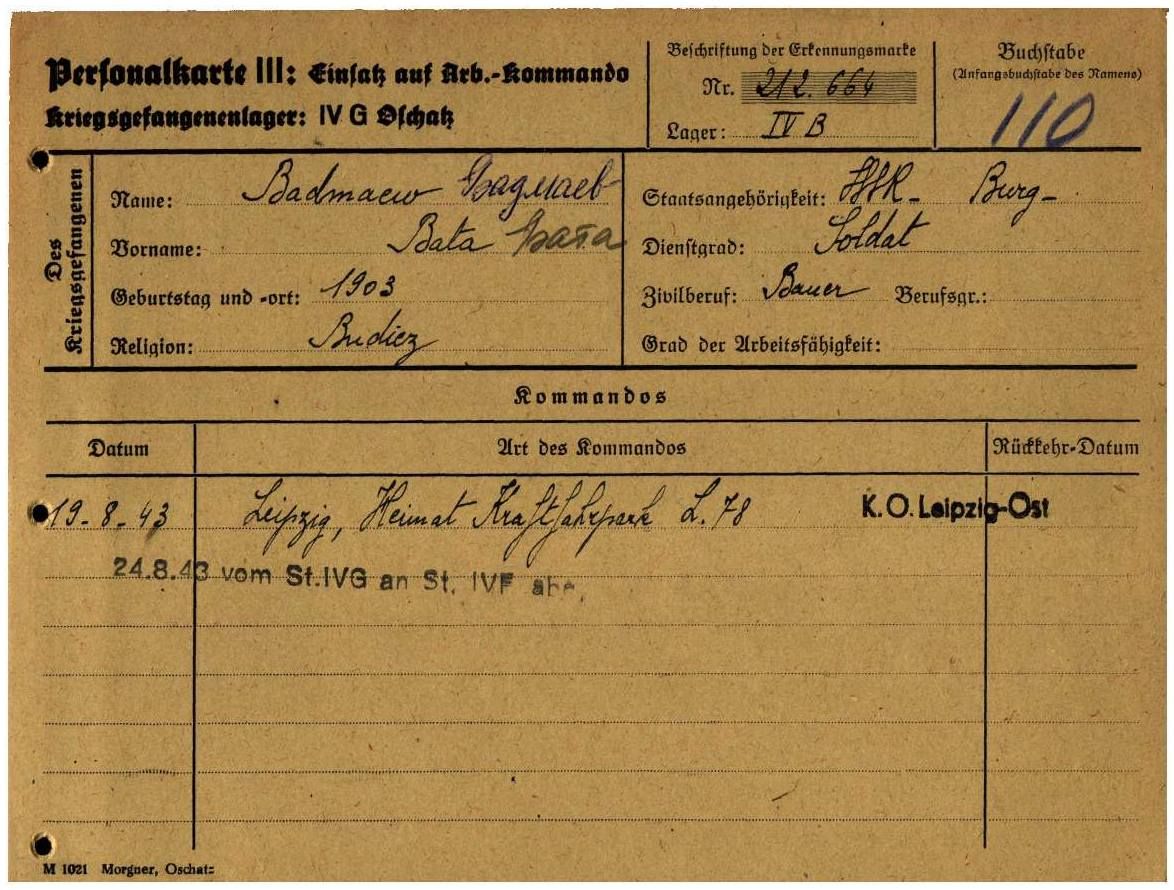 Personalkarte III: Einsatz auf Arb.-Kommando
Kriegsgefangenenlager: IV G Oschatz
Beschriftung der Erkennungsmarke
Nr. 212.664
Lager: IV B
Buchstabe
(Anfangsbuchstabe des Namens)
110
Des Kriegsgefangenen
Name: Badmaew Бадмаев
Vorname: Bata Бата
Geburtstag und -ort: 1903
Religion: Budiez
Staatsangehörigkeit: Burg-
Dienstgrad: Soldat
Zivilberuf: Bauer Berufsgr.:
Grad der Arbeitsfähigkeit:
Kommandos
Datum Art des Kommandos Rückkehr-Datum
19-8-43 Leipzig, Heimat Kraftfahrpark L.78 K.O. Leipzig-Ost
24.8.43 vom St.IVG an St. IVF
M 1021 Morgner, Oschatz